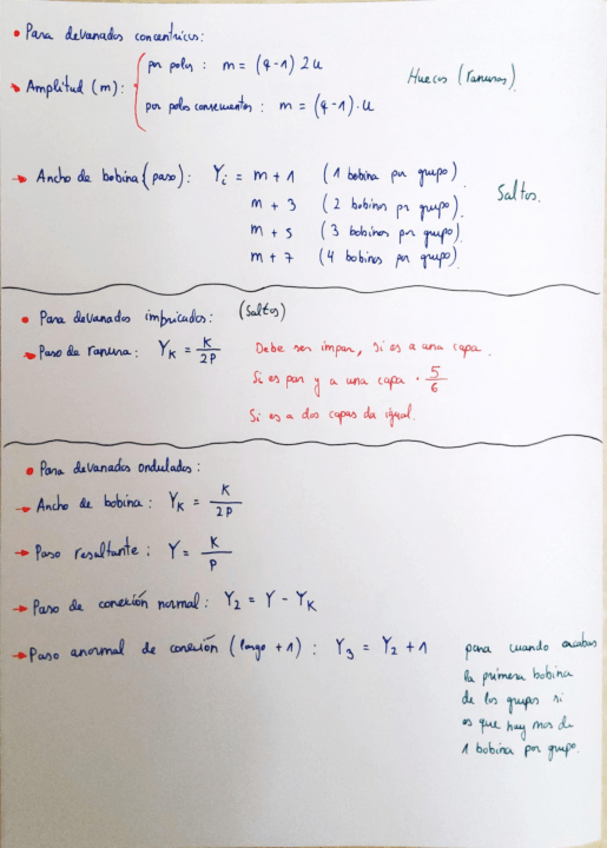 • Para devanados concentricos:
→ Amplitud (m): { por polos : m = (q-1) 2u
por polos consecuentes : m = (q-1)·u
Huecos (ranuras).
→ Ancho de bobina (paso): Yi = m + 1 (1 bobina por grupo).
m + 3 (2 bobinas pr grupo).
m + 5 (3 bobinas por grupo).
m + 7 (4 bobinas por grupo).
Saltos.
• Para devanados imbricados: (Saltos)
→ Paso de ranura: YK = K/2P
Debe ser impar, si es a una capa.
Si es par y a una capa · 5/6
Si es a dos capas da igual.
• Para devanados ondulados:
→ Ancho de bobina: YK = K/2P
→ Paso resultante: Y = K/P
→ Paso de conexión normal: Y2 = Y - YK
→ Paso anormal de conexión (largo +1) : Y3 = Y2 + 1
para cuando acabas
la primera bobina
de los grupos si
es que hay mas de
1 bobina por grupo.